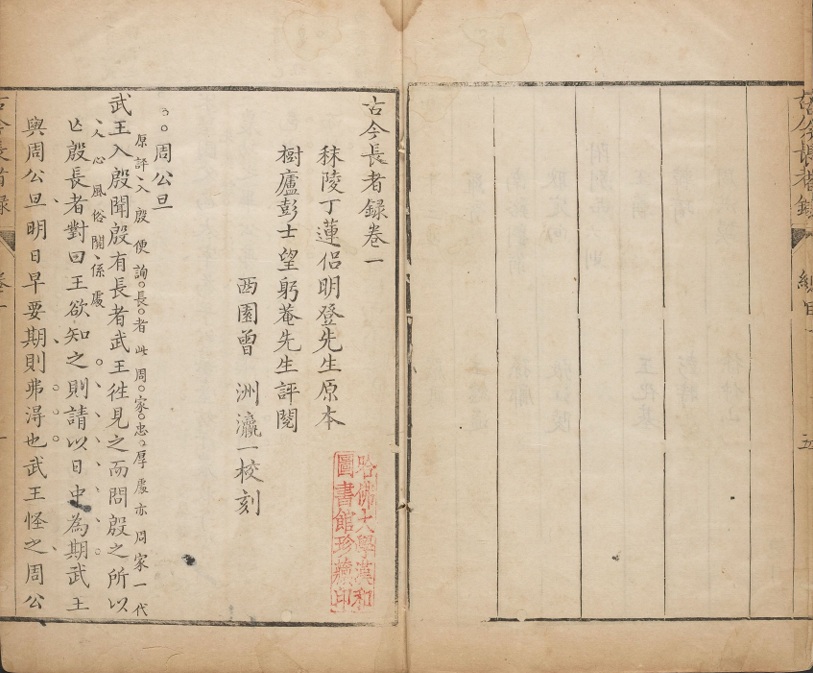 古今長者錄
總目
五
古今長者錄卷一
秣陵丁蓮侶明登先生原本
樹廬彭士望躬菴先生評閱
西園曾　洲瀛一校刻
哈佛大學漢和
圖書館珍藏印
周公旦
原評入殷便詢長者此周家忠厚處亦周家一代
人心風俗關係處
武王入殷聞殷有長者武王徃見之而問殷之所以
亡殷長者對曰王欲知之則請以日中為期武王
與周公旦明日早要期則弗淂也武王怪之周公
古今長者錄
卷一
一